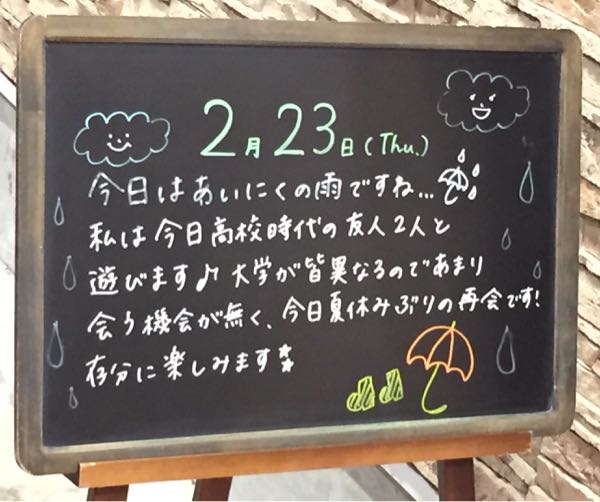 2月23日(Thu.)
今日はあいにくの雨ですね...
私は今日高校時代の友人2人と
遊びます♪大学が皆異なるのであまり
会う機会が無く、今日夏休みぶりの再会です!
存分に楽しみます